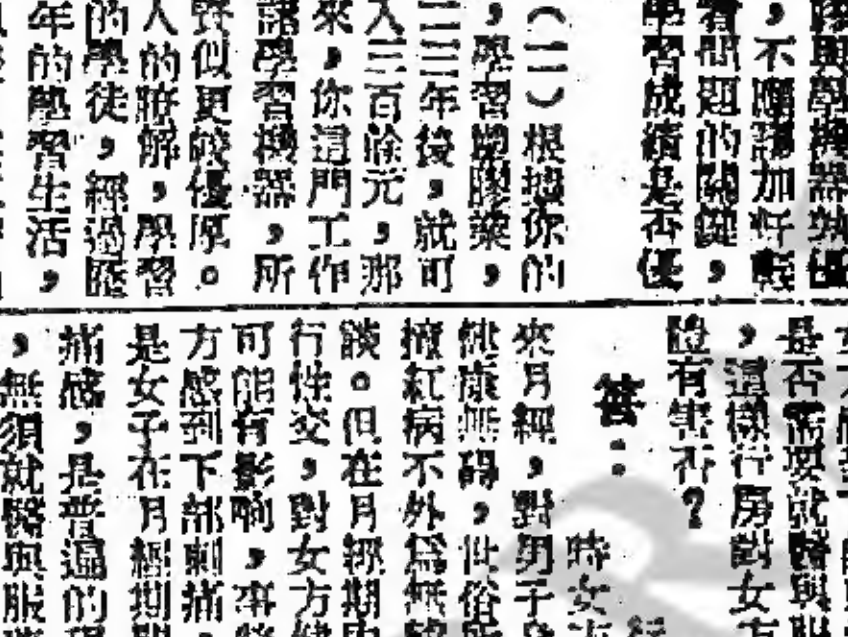 學習成績是否優
看問題的關鍵，
，不嚫
（二）根據你的
，學習塑膠業，
二三年後，就可
入三百餘元，那
來，你這門工作
諸學習機器，所
勞似更較優厚。
人的瞭解，學習
的學徒，經過
年的學習生活，
是否需要就醫與
，這樣行房對女方
體有害否？
答：
時女方
來月經，對男子
健康無碍，世俗所
撞紅病不外為無稽
談。但在月經期中
行性交，對女方健
可能有影响，事後
方感到下部刺痛，
是女子在月經期間
痛感，是普遍的現
，無須就醫與服